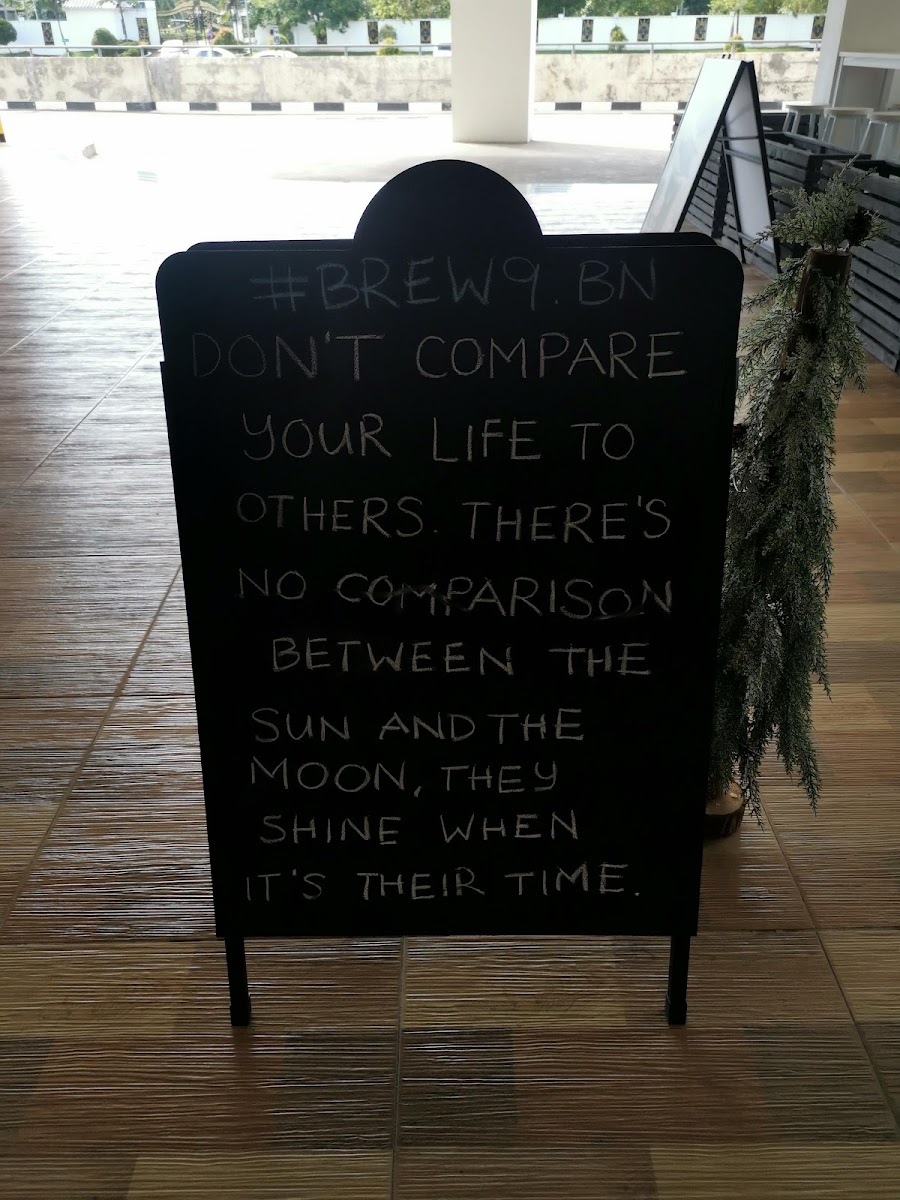 #BREW9.BN
DON'T COMPARE
YOUR LIFE TO
OTHERS. THERE'S
NO COMPARISON
BETWEEN THE
SUN AND THE
MOON, THEY
SHINE WHEN
IT'S THEIR TIME.